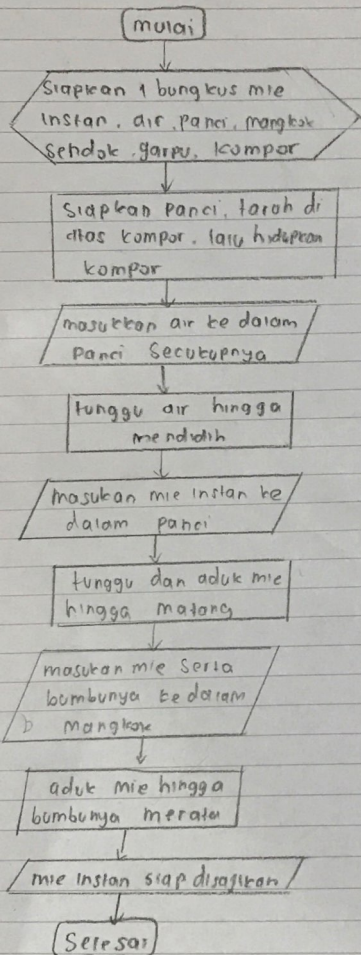 mulai
Siapkan 1 bungkus mie
instan, air, panci, mangkok
sendok, garpu, kompor
Siapkan panci, taroh di
atas kompor, lalu hidupkan
kompor
masukkan air ke dalam
panci secukupnya
tunggu air hingga
mendidih
masukan mie instan ke
dalam panci
tunggu dan aduk mie
hingga matang
masukan mie serta
bumbunya ke dalam
mangkok
aduk mie hingga
bumbunya merata
mie instan siap disajikan
Selesai